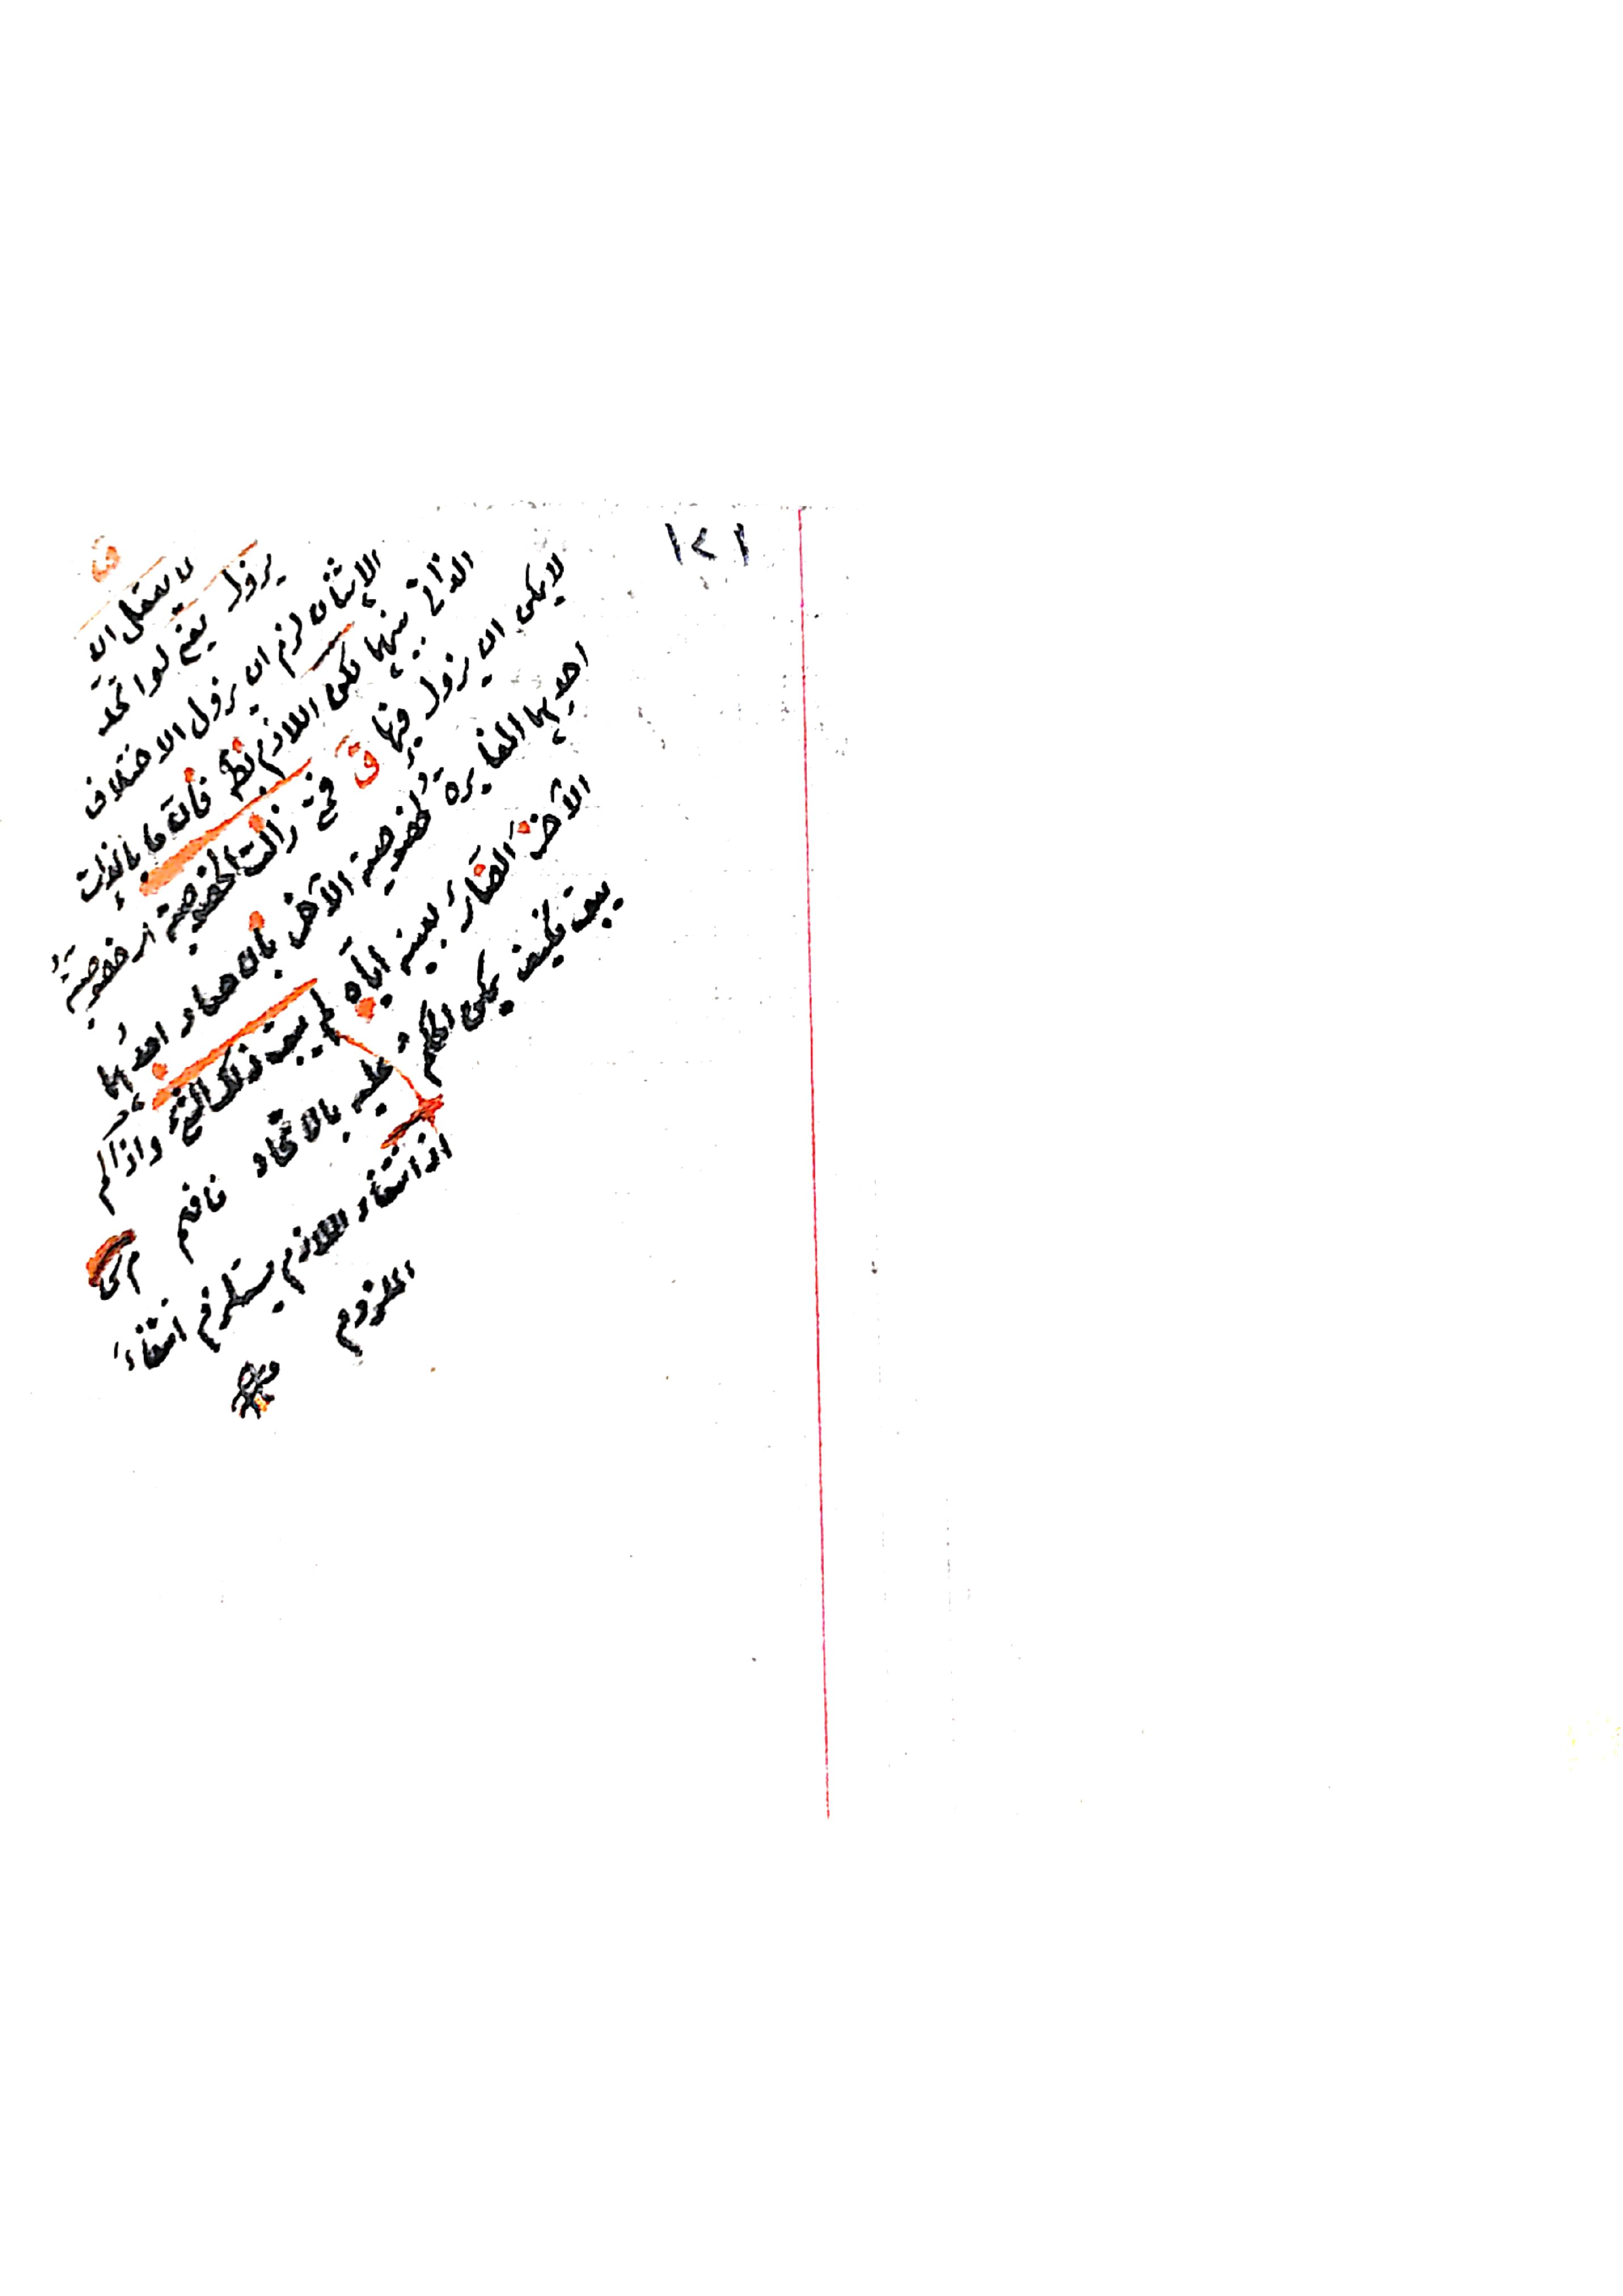 ١٢١
ق
لا يعقل ان
يزول يعني لو اتحد
الاثنان لزم ان يزول الاختلاف
الذاتي بينهما لكن اللازم بط فانه ما بالذات
لا يمكن ان يزول فيهما ق فمتى زالت الخصوصية اى خصوصية
احديهما المغايرة لخصوصية الآخر بان صار احدهما
الآخر الصائر بعينه اياه لم يبق ذلك الشئ واذا لم
يبق فكيف يمكن الحكم عليه بالاتحاد فافهم
اذ انتفاء اللازم يستلزم انتفاء
الملزوم